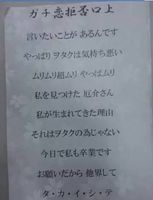 ガチ恋拒否口上
言いたいことが あるんです
やっぱりヲタクは気持ち悪い
ムリムリ組ムリ やっぱムリ
私を見つけた 厄介さん
私が生まれてきた理由
それはヲタクの為じゃない
今日で私も卒業です
お願いだから 他界して
タ・カ・イ・シ・テ